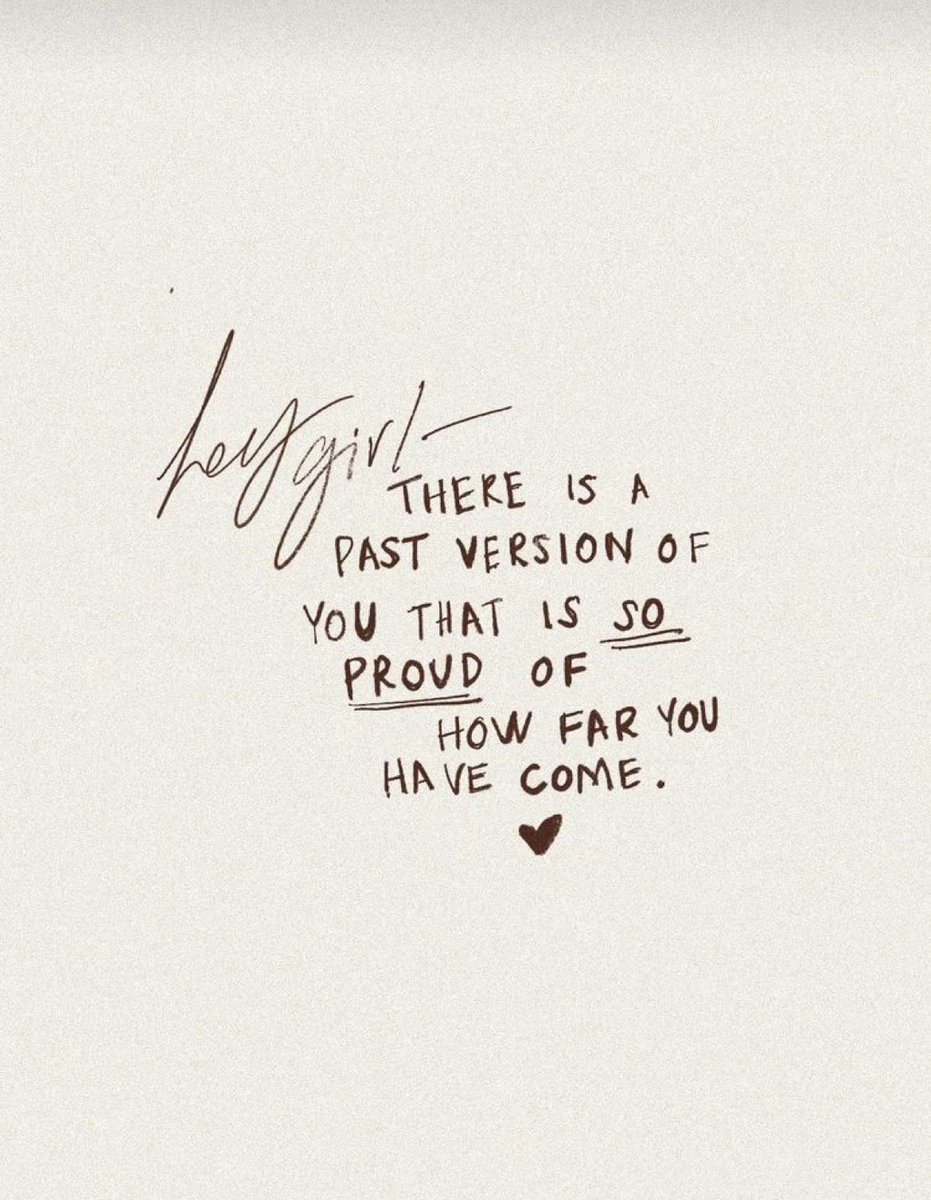 hey girl—
THERE IS A
PAST VERSION OF
YOU THAT IS SO
PROUD OF
HOW FAR YOU
HAVE COME.